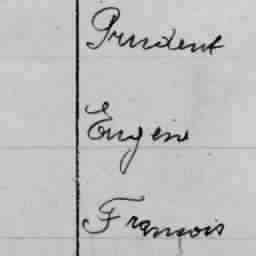 Prudent
Eugène
François